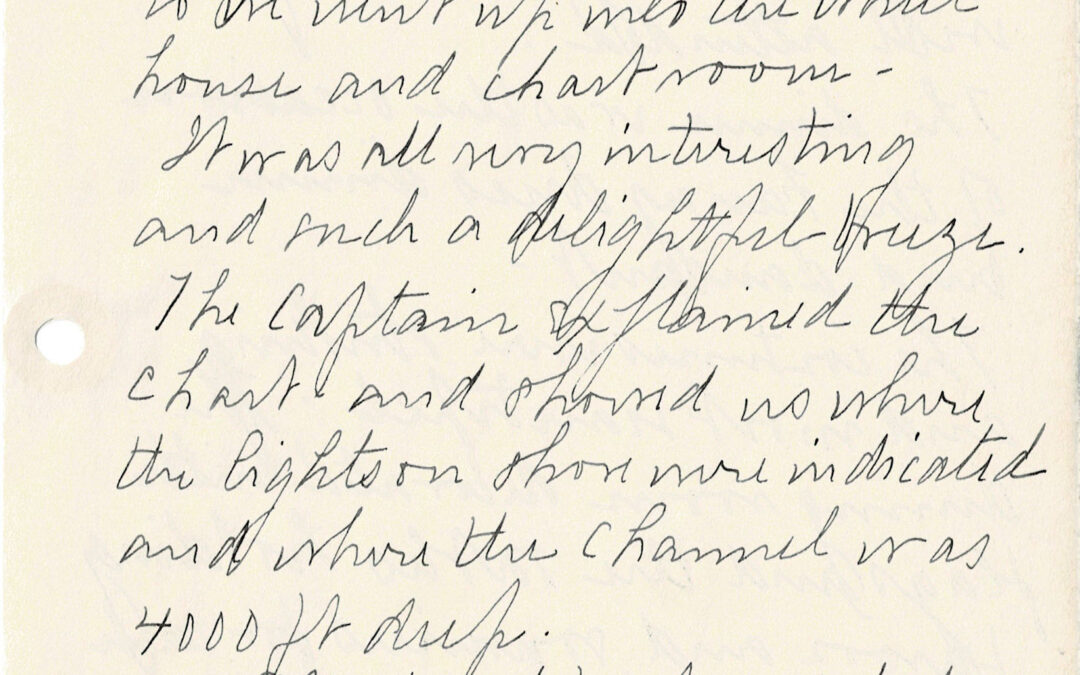 we went up into the
house and chart room -
It was all very interesting
and such a delightful breeze.
The Captain explained the
chart and showed us where
the lights on shore were indicated
and where the channel was
4000 ft deep.